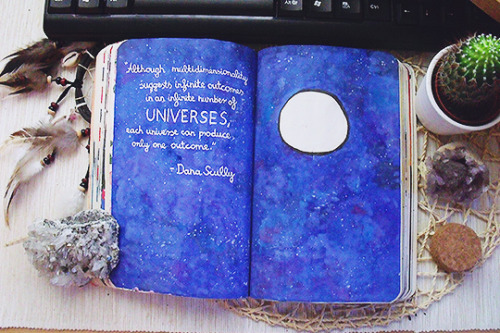 "Although multidimensionality
suggests infinite outcomes
in an infinite number of
UNIVERSES,
each universe can produce
only one outcome."
- Dana Scully